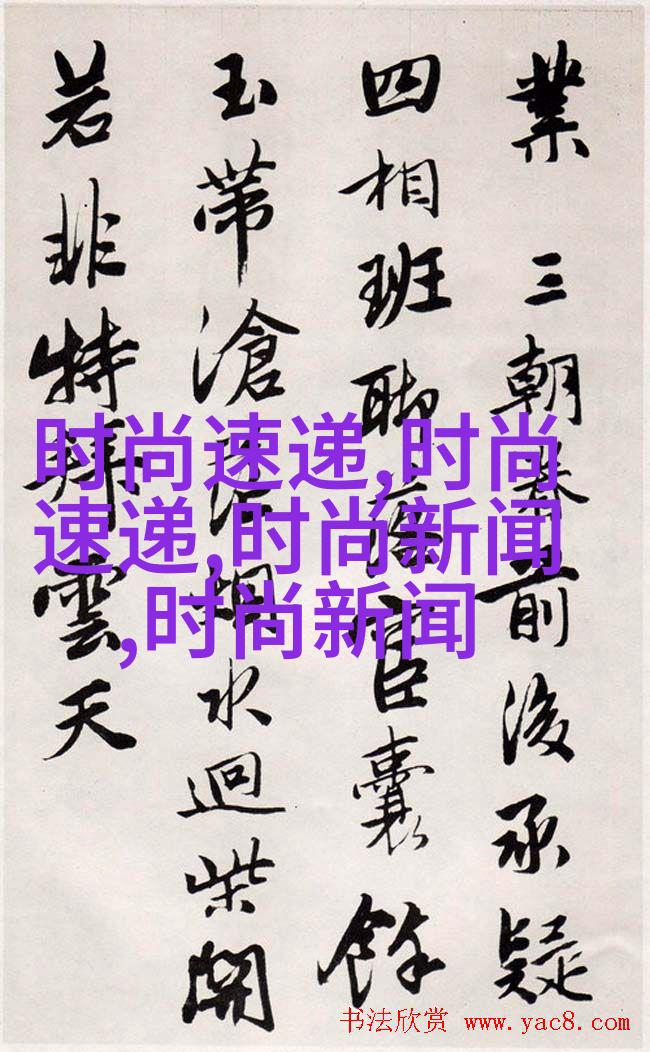 業 三朝前後承疑
四相班聯宦囊餘
玉帶滄水迴柴開
若非特拜雲天
时尚速递,时尚
速递,时尚新闻
,时尚新闻
书法欣赏 www.yac8.com